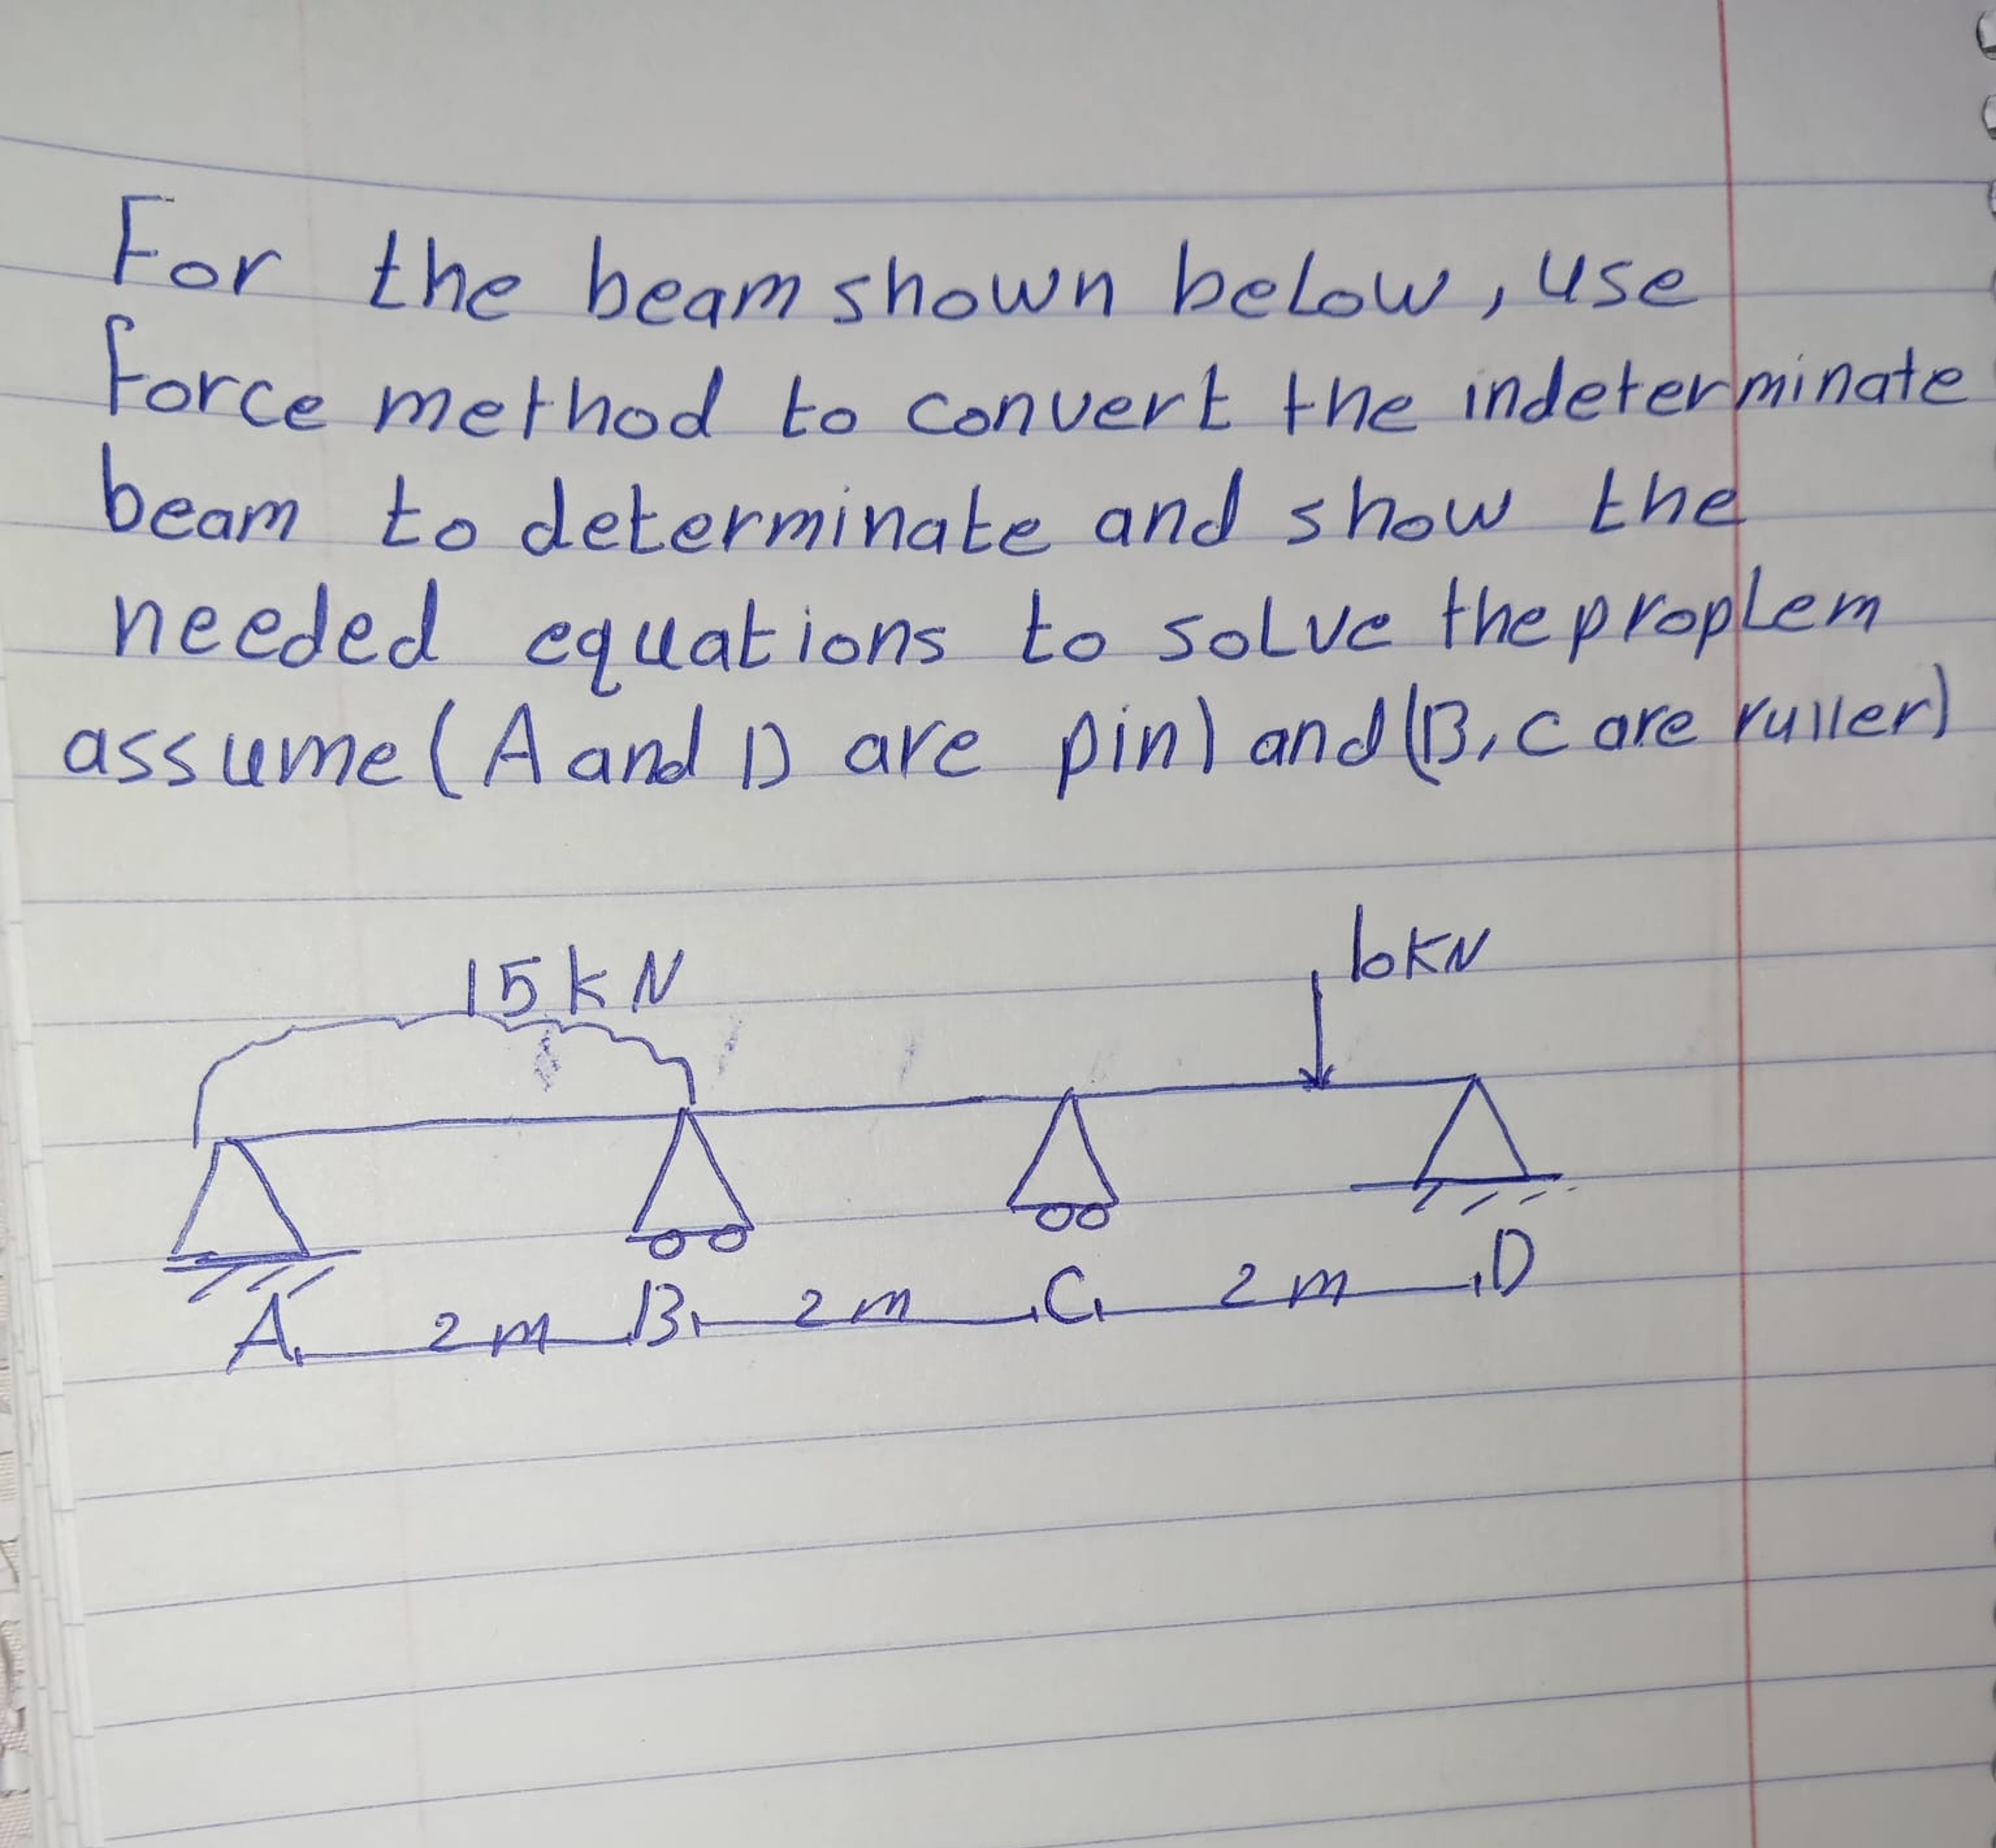 For the beam shown below, use
Force method to convert the indeterminate
beam to determinate and show the
needed equations to solve the proplem
assume (A and D are pin) and (B, C are ruller)
15 kN
10KN
A 2 m B 2 m C 2 m D